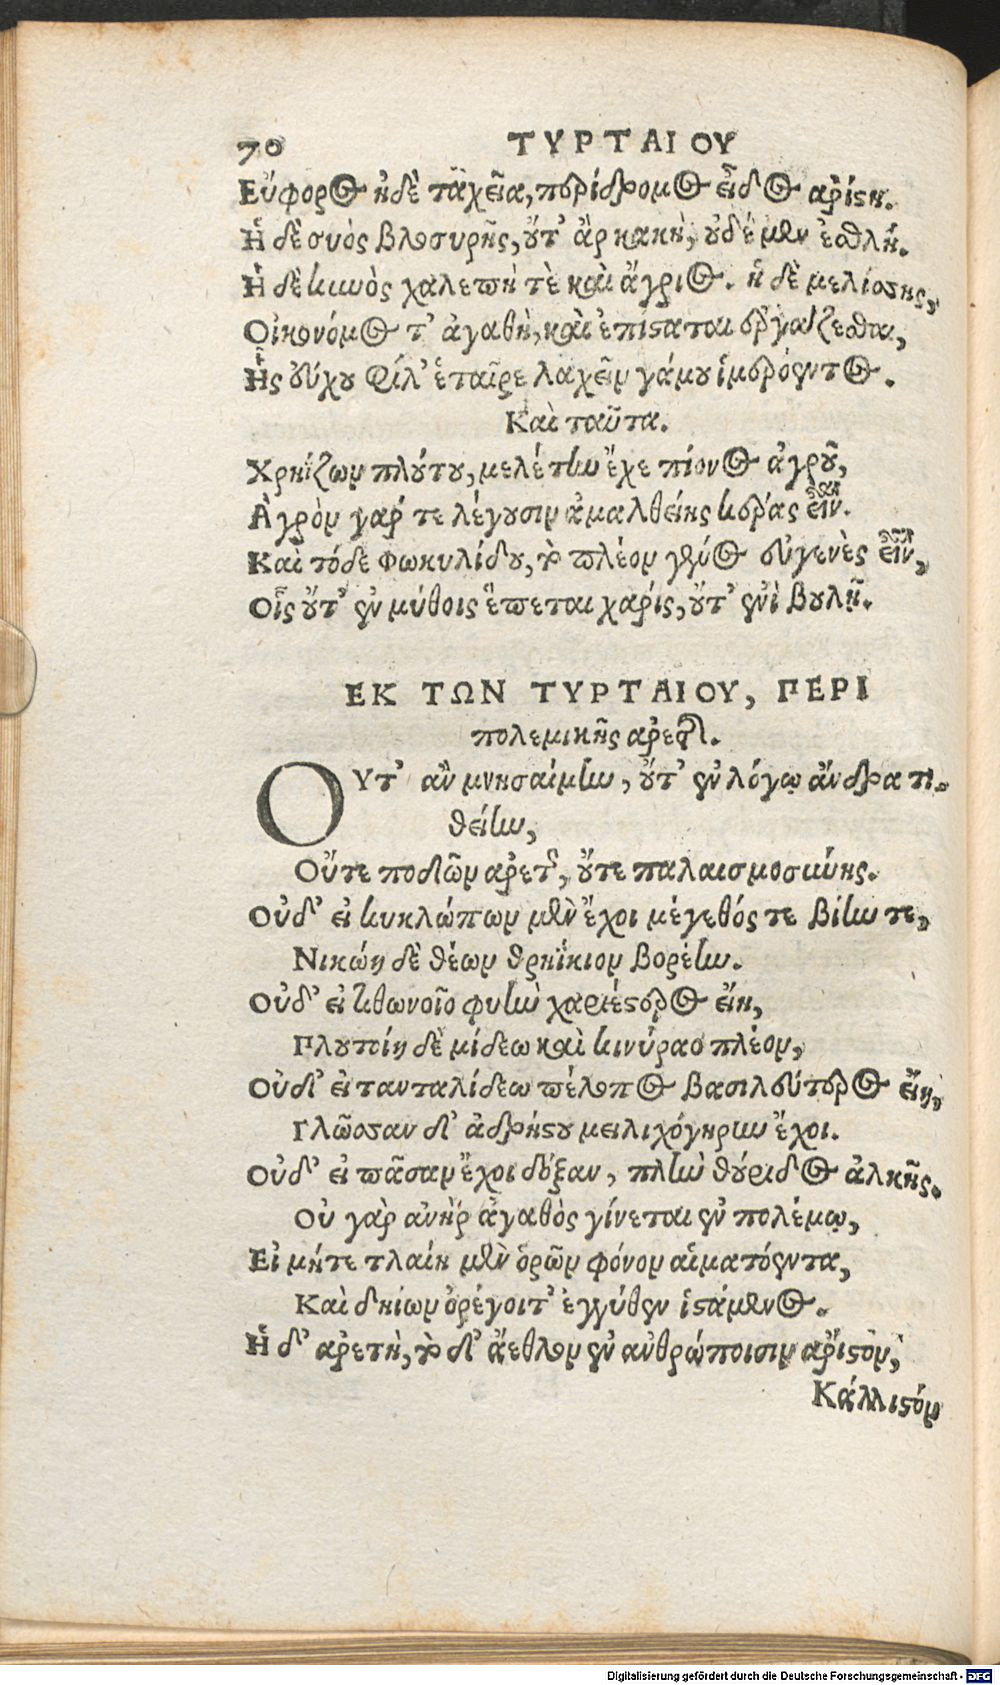 70 ΤΥΡΤΑΙΟΥ
Εὔφορος ἠδὲ ταχεῖα, περίδρομος εἶδος ἀρίστη.
Ἡ δὲ συὸς βλοσυρῆς, οὔτ' ἂρ κακὴ, οὐδὲ μὲν ἐσθλή.
Ἡ δὲ κυνὸς χαλεπή τὲ καὶ ἄγριος. ἡ δὲ μελίσσης,
Οἰκονόμος τ' ἀγαθὴ, καὶ ἐπίσταται ἐργάζεσθαι,
Ἧς εὔχου φίλ' ἑταῖρε λαχεῖν γάμου ἱμερόεντος.
Καὶ ταῦτα.
Χρηΐζων πλούτου, μελέτην ἔχε πίονος ἀγροῦ,
Ἀγρὸν γάρ τε λέγουσιν ἀμαλθείης κέρας εἶναι.
Καὶ τόδε Φωκυλίδου, τὸ πλέον γένος εὐγενὲς εἶναι,
Οἷς οὔτ' ἐν μύθοις ἕπεται χάρις, οὔτ' ἐνὶ βουλῇ.
ΕΚ ΤΩΝ ΤΥΡΤΑΙΟΥ, ΠΕΡΙ
πολεμικῆς ἀρετῆς.
ΟΥΤ' ἂν μνησαίμην, οὔτ' ἐν λόγῳ ἄνδρα τι-
θείην,
Οὔτε ποδῶν ἀρετῆς, οὔτε παλαισμοσύνης.
Οὐδ' εἰ κυκλώπων μὲν ἔχοι μέγεθός τε βίην τε,
Νικῴη δὲ θέων θρηΐκιον βορέην.
Οὐδ' εἰ τιθωνοῖο φυὴν χαριέστερος εἴη,
Πλουτοίη δὲ μίδεω καὶ κινύραο πλέον,
Οὐδ' εἰ τανταλίδεω πέλοπος βασιλεύτερος εἴη,
Γλῶσσαν δ' ἀδρήστου μειλιχόγηρυν ἔχοι.
Οὐδ' εἰ πᾶσαν ἔχοι δόξαν, πλὴν θούριδος ἀλκῆς.
Οὐ γὰρ ἀνὴρ ἀγαθὸς γίνεται ἐν πολέμῳ,
Εἰ μήτε τλαίη μὲν ὁρῶν φόνον αἱματόεντα,
Καὶ δηίων ὀρέγοιτ' ἐγγύθεν ἱστάμενος.
Ἡ δ' ἀρετὴ, τὸ δ' ἄεθλον ἐν ἀνθρώποισιν ἄριστον,
Κάλλιστόν
Digitalisierung gefördert durch die Deutsche Forschungsgemeinschaft - DFG